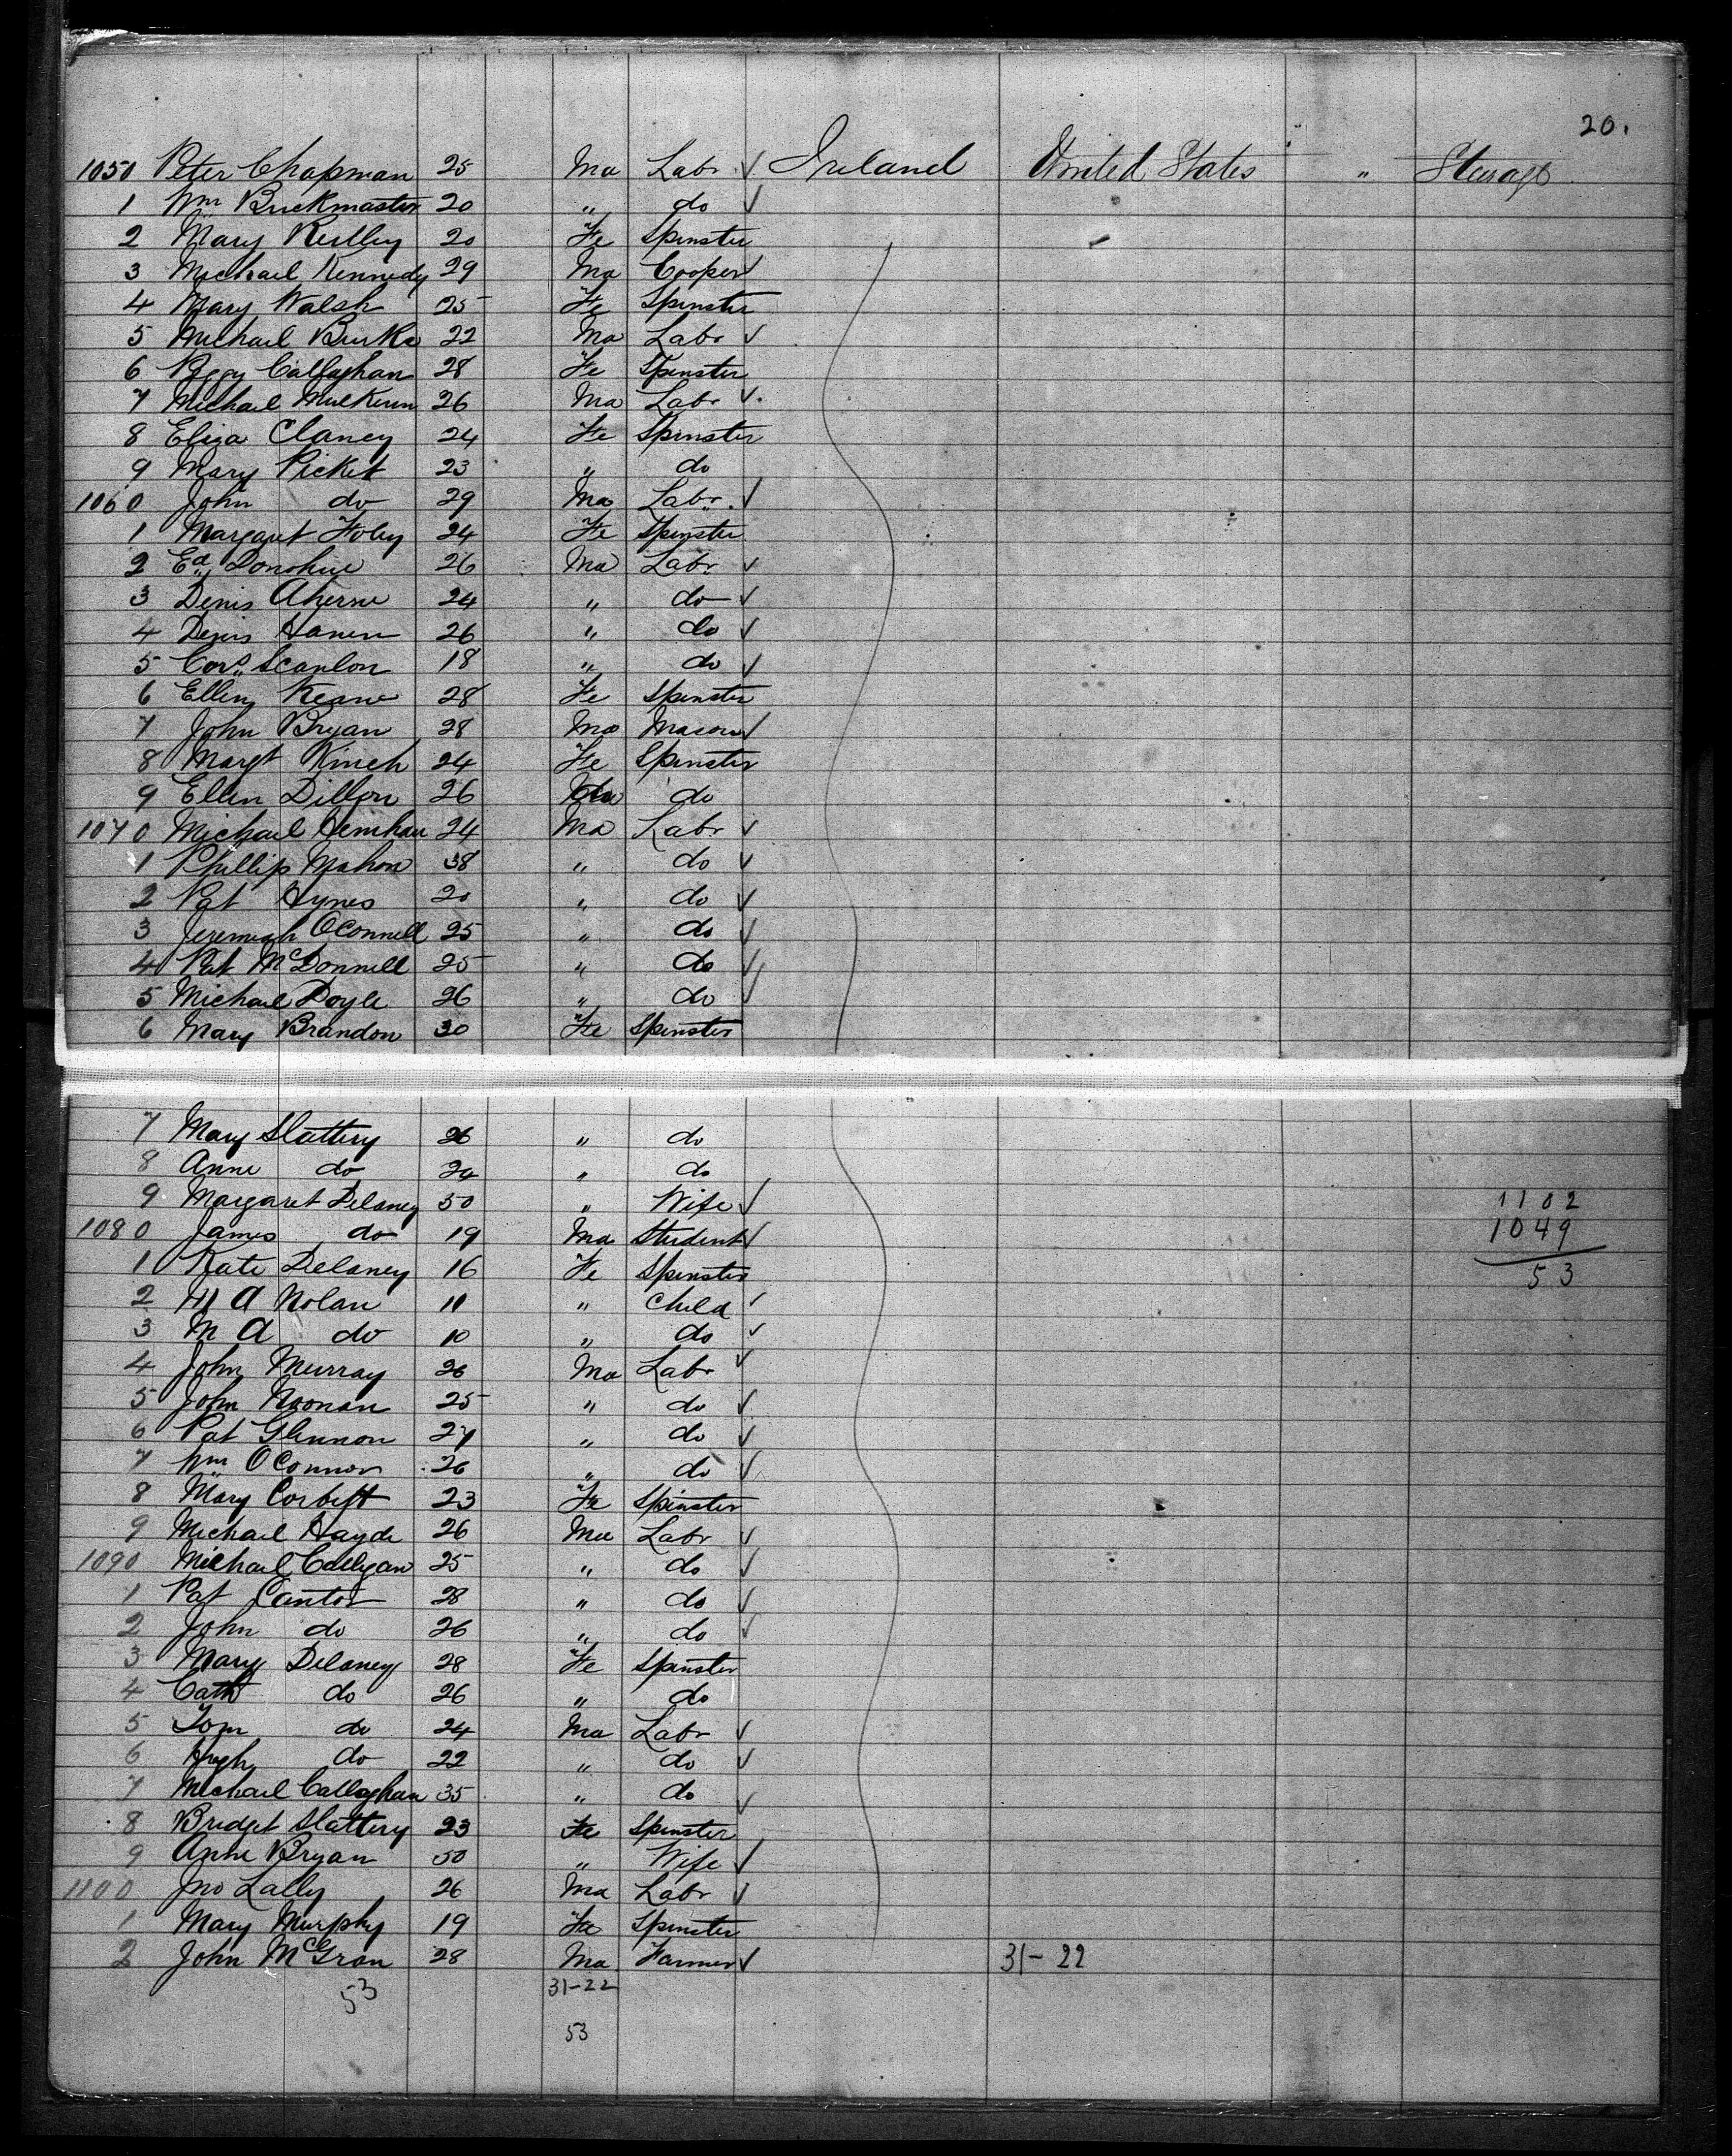 20.
1050 Peter Chapman 25 Ma Labr ✓ Ireland United States " Steerage
1 Wm Buckmaster 20 " do ✓
2 Mary Reilley 20 Fe Spinster
3 Michael Kennedy 29 Ma Cooper ✓
4 Mary Walsh 25 Fe Spinster
5 Michael Burke 22 Ma Labr ✓
6 Peggy Callaghan 28 Fe Spinster
7 Michael Mulkern 26 Ma Labr ✓
8 Eliza Clancy 24 Fe Spinster
9 Mary Picket 23 " do
1060 John do 29 Ma Labr ✓
1 Margaret Foley 24 Fe Spinster
2 Ed Donohue 26 Ma Labr ✓
3 Denis Aherne 24 " do ✓
4 Denis 26 " do ✓
5 Cors Scanlon 18 " do ✓
6 Ellen Keane 28 Fe Spinster
7 John Bryan 28 Ma Mason ✓
8 Margt Kinch 24 Fe Spinster
9 Ellen Dillon 26 do
1070 Michael 24 Ma Labr ✓
1 Phillip Mahon 38 " do ✓
2 Pat Hynes 20 " do ✓
3 Jeremiah OConnell 25 " do ✓
4 Pat McDonnell 25 " do ✓
5 Michael Doyle 26 " do ✓
6 Mary Brandon 30 Fe Spinster
7 Mary Slattery 26 " do
8 Anne do 24 " do
9 Margaret Delaney 50 " Wife ✓
1080 James do 19 Ma Student ✓
1 Kate Delaney 16 Fe Spinster
2 M A Nolan 11 " Child ✓
3 M A do 10 " do ✓
4 John Murray 26 Ma Labr ✓
5 John Noonan 25 " do ✓
6 Pat Glennon 27 " do ✓
7 Wm OConnor 26 " do ✓
8 Mary Corbett 23 Fe Spinster
9 Michael Hayde 26 Ma Labr ✓
1090 Michael Colligan 25 " do ✓
1 Pat Cantor 28 " do ✓
2 John do 26 " do ✓
3 Mary Delaney 28 Fe Spinster
4 Cath do 26 " do
5 Tom do 24 Ma Labr ✓
6 Hugh do 22 " do ✓
7 Michael Callaghan 35 " do ✓
8 Bridget Slattery 23 Fe Spinster
9 Anne Bryan 50 " Wife ✓
1100 Jno Lally 26 Ma Labr ✓
1 Mary Murphy 19 Fe Spinster
2 John McGran 28 Ma Farmer ✓ 31-22
53 31-22
53
1102
1049
53